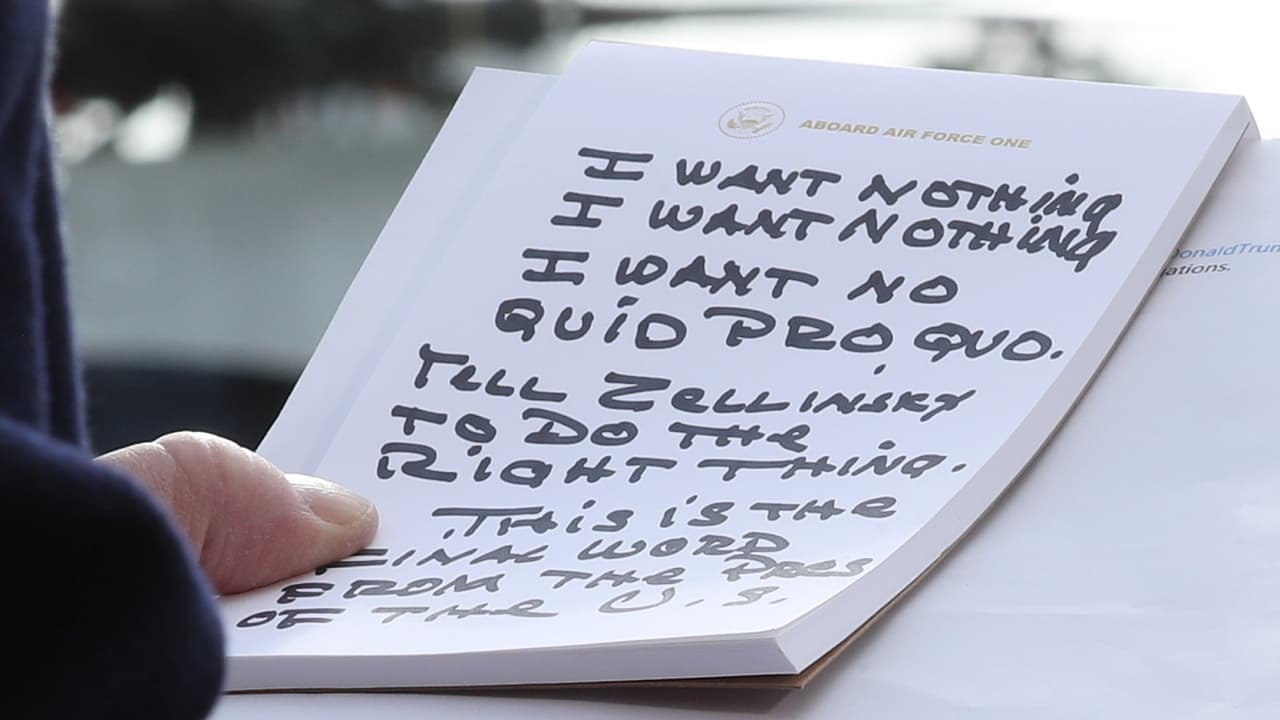 ABOARD AIR FORCE ONE
I WANT NOTHING
I WANT NOTHING
I WANT NO
QUID PRO QUO.
TELL ZELLINSKY
TO DO THE
RIGHT THING.
THIS IS THE
FINAL WORD
FROM THE PRES
OF THE U.S.
DonaldTrum
ations.